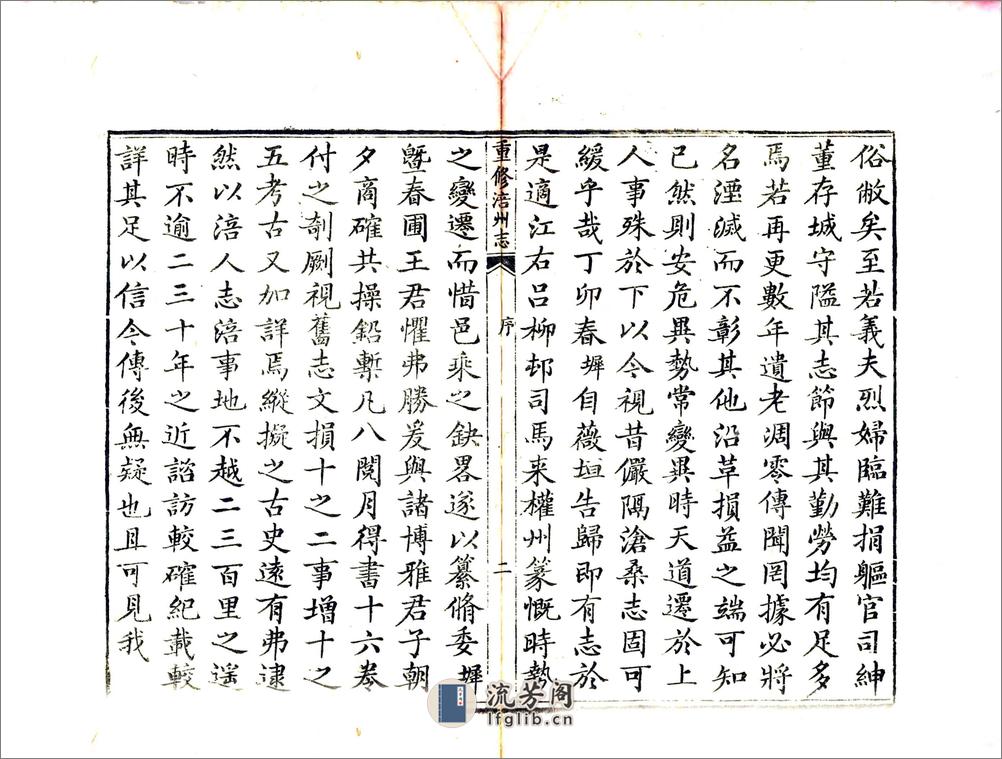 俗敝矣至若義夫烈婦臨難捐軀官司紳
董存城守隘其志節與其勤勞均有足多
焉若再更數年遺老凋零傳聞罔據必將
名湮滅而不彰其他沿革損益之端可知
已然則安危異勢常變異時天道遷於上
人事殊於下以今視昔儼隔滄桑志固可
緩乎哉丁卯春墀自薇垣告歸即有志於
是適江右呂柳邨司馬来權州篆慨時勢
重修涪州志
序
二
之變遷而惜邑乘之缺畧遂以纂脩委墀
暨春圃王君懼弗勝爰與諸博雅君子朝
夕商確共操鉛槧凡八閱月得書十六卷
付之剞劂視舊志文損十之二事增十之
五考古又加詳焉縱擬之古史遠有弗逮
然以涪人志涪事地不越二三百里之遥
時不逾二三十年之近諮訪較確紀載較
詳其足以信今傳後無疑也且可見我
流芳阁
lfglib.cn